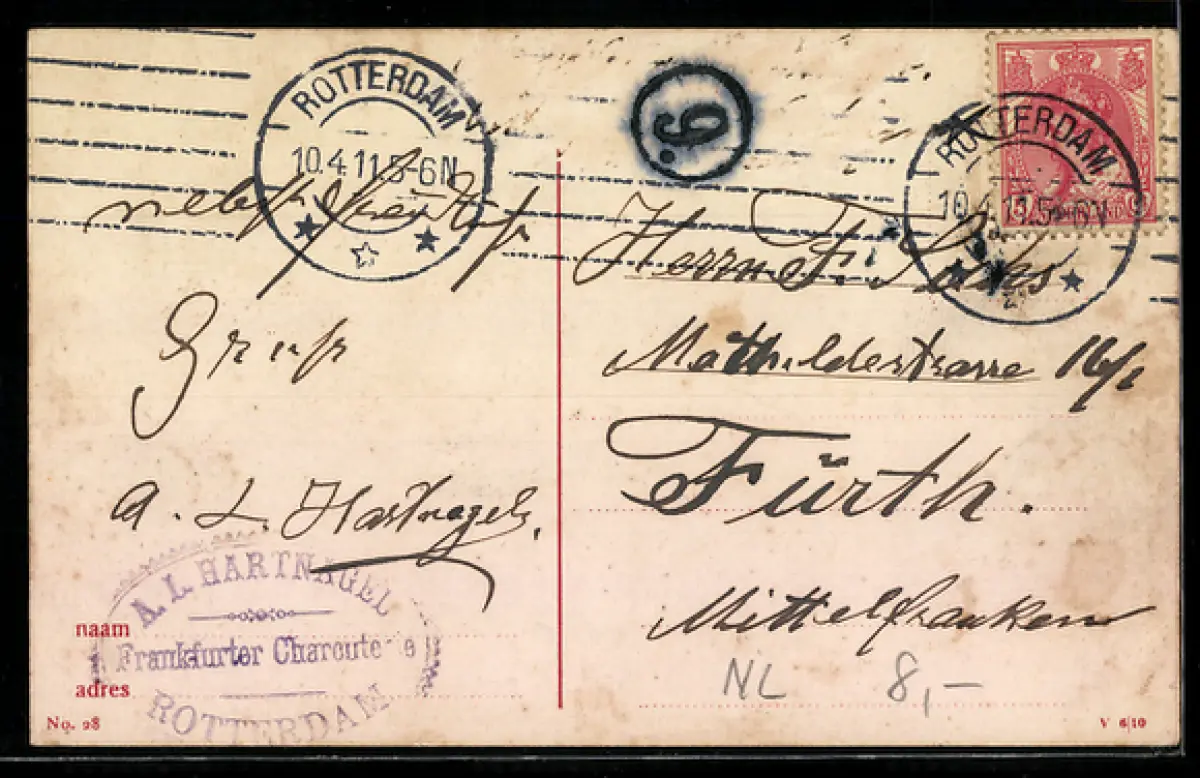 ROTTERDAM
10.4.11 5-6N
ROTTERDAM
10.4.11 5-6N
9.
nebst
Gruß
A. L. Hartnagel.
A. L. HARTNAGEL
Frankfurter Charcuterie
ROTTERDAM
naam
adres
No. 28
Herrn F.
Mathildestrasse 16/I
Fürth.
Mittelfranken
NL 8,-
V 6|10